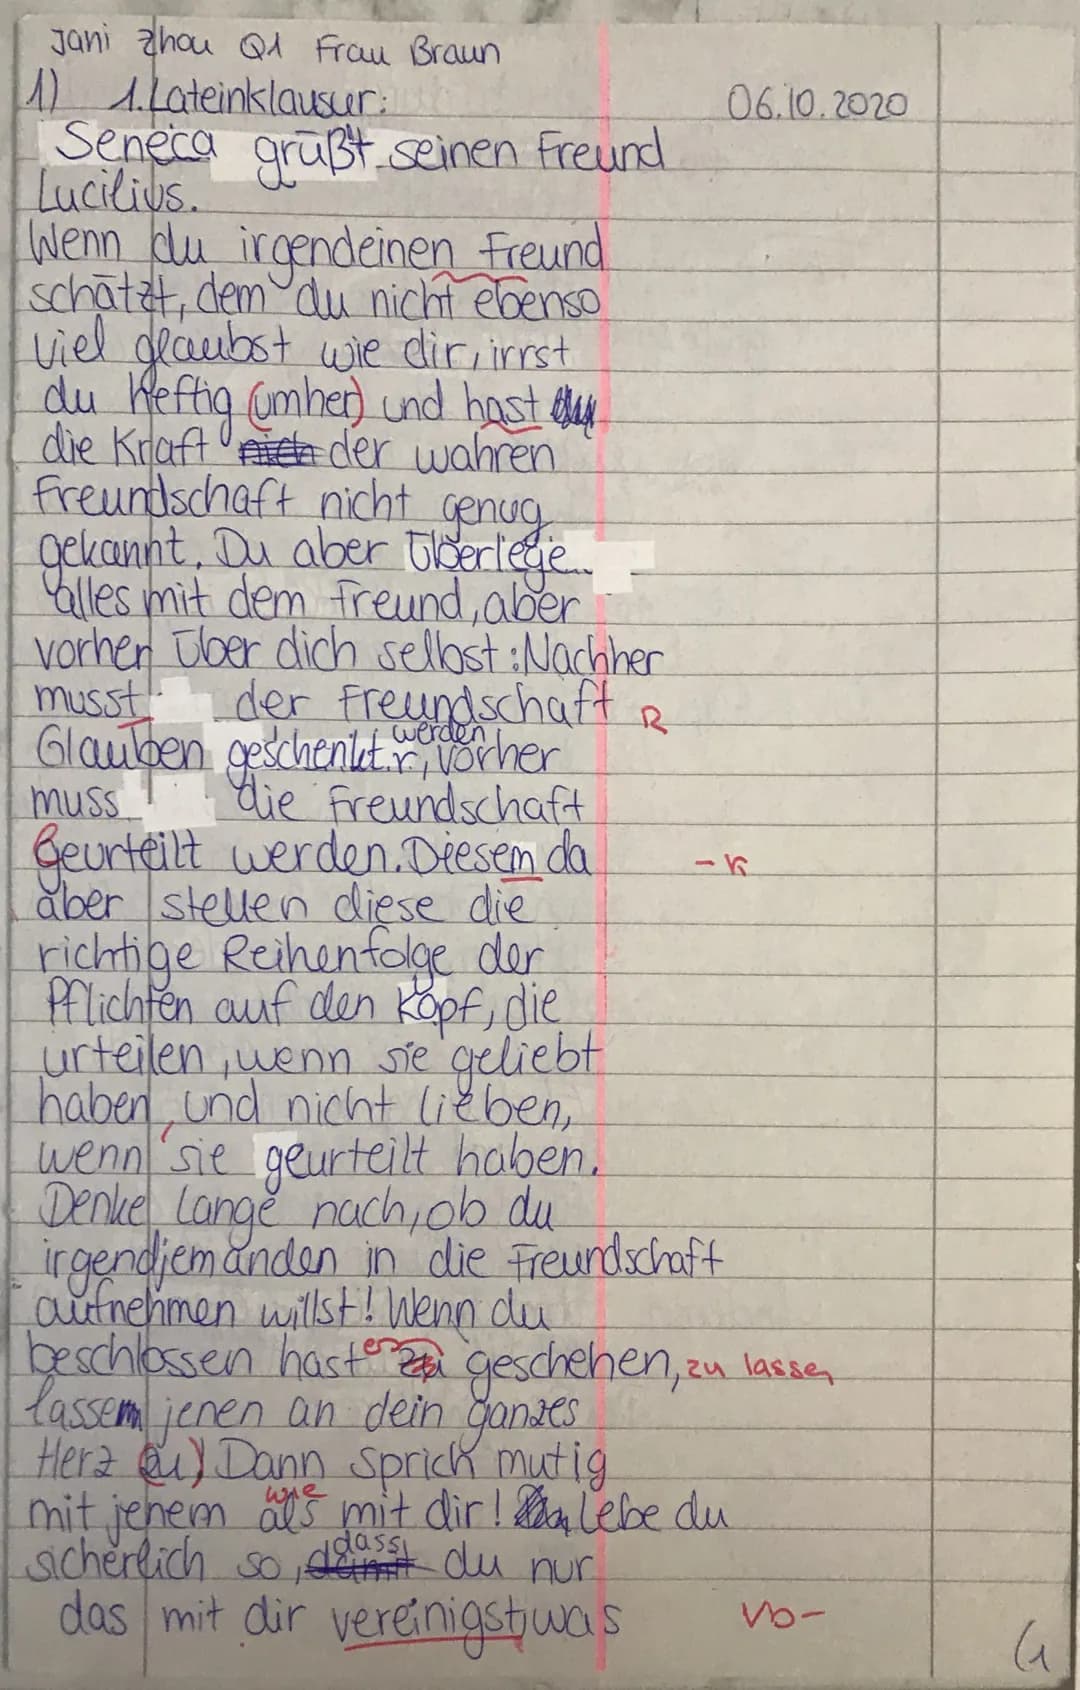 Jani Zhou Q1 Frau Braun
1) 1. Lateinklausur: 06.10.2020
Seneca grüßt seinen Freund
Lucilius.
Wenn du irgendeinen Freund
schätzt, dem du nicht ebenso
viel glaubst wie dir, irrst
du heftig (umher) und hast
die Kraft nich der wahren
Freundschaft nicht genug
gekannt. Du aber überlege
alles mit dem Freund, aber
vorher über dich selbst: Nachher
musst der Freundschaft R
werden
Glauben geschenkt, vorher
muss die Freundschaft
geurteilt werden. Diesem da - K
aber stellen diese die
richtige Reihenfolge der
Pflichten auf den Kopf, die
urteilen, wenn sie geliebt
haben, und nicht lieben,
wenn sie geurteilt haben.
Denke lange nach, ob du
irgendjemanden in die Freundschaft
aufnehmen willst! Wenn du
beschlossen hast es zu geschehen, zu lassen
lassen jenen an dein ganzes
Herz (zu) Dann sprich mutig
wie
mit jenem als mit dir! Lebe du
dass
sicherlich so, damit du nur
das mit dir vereinigst, was Vb-